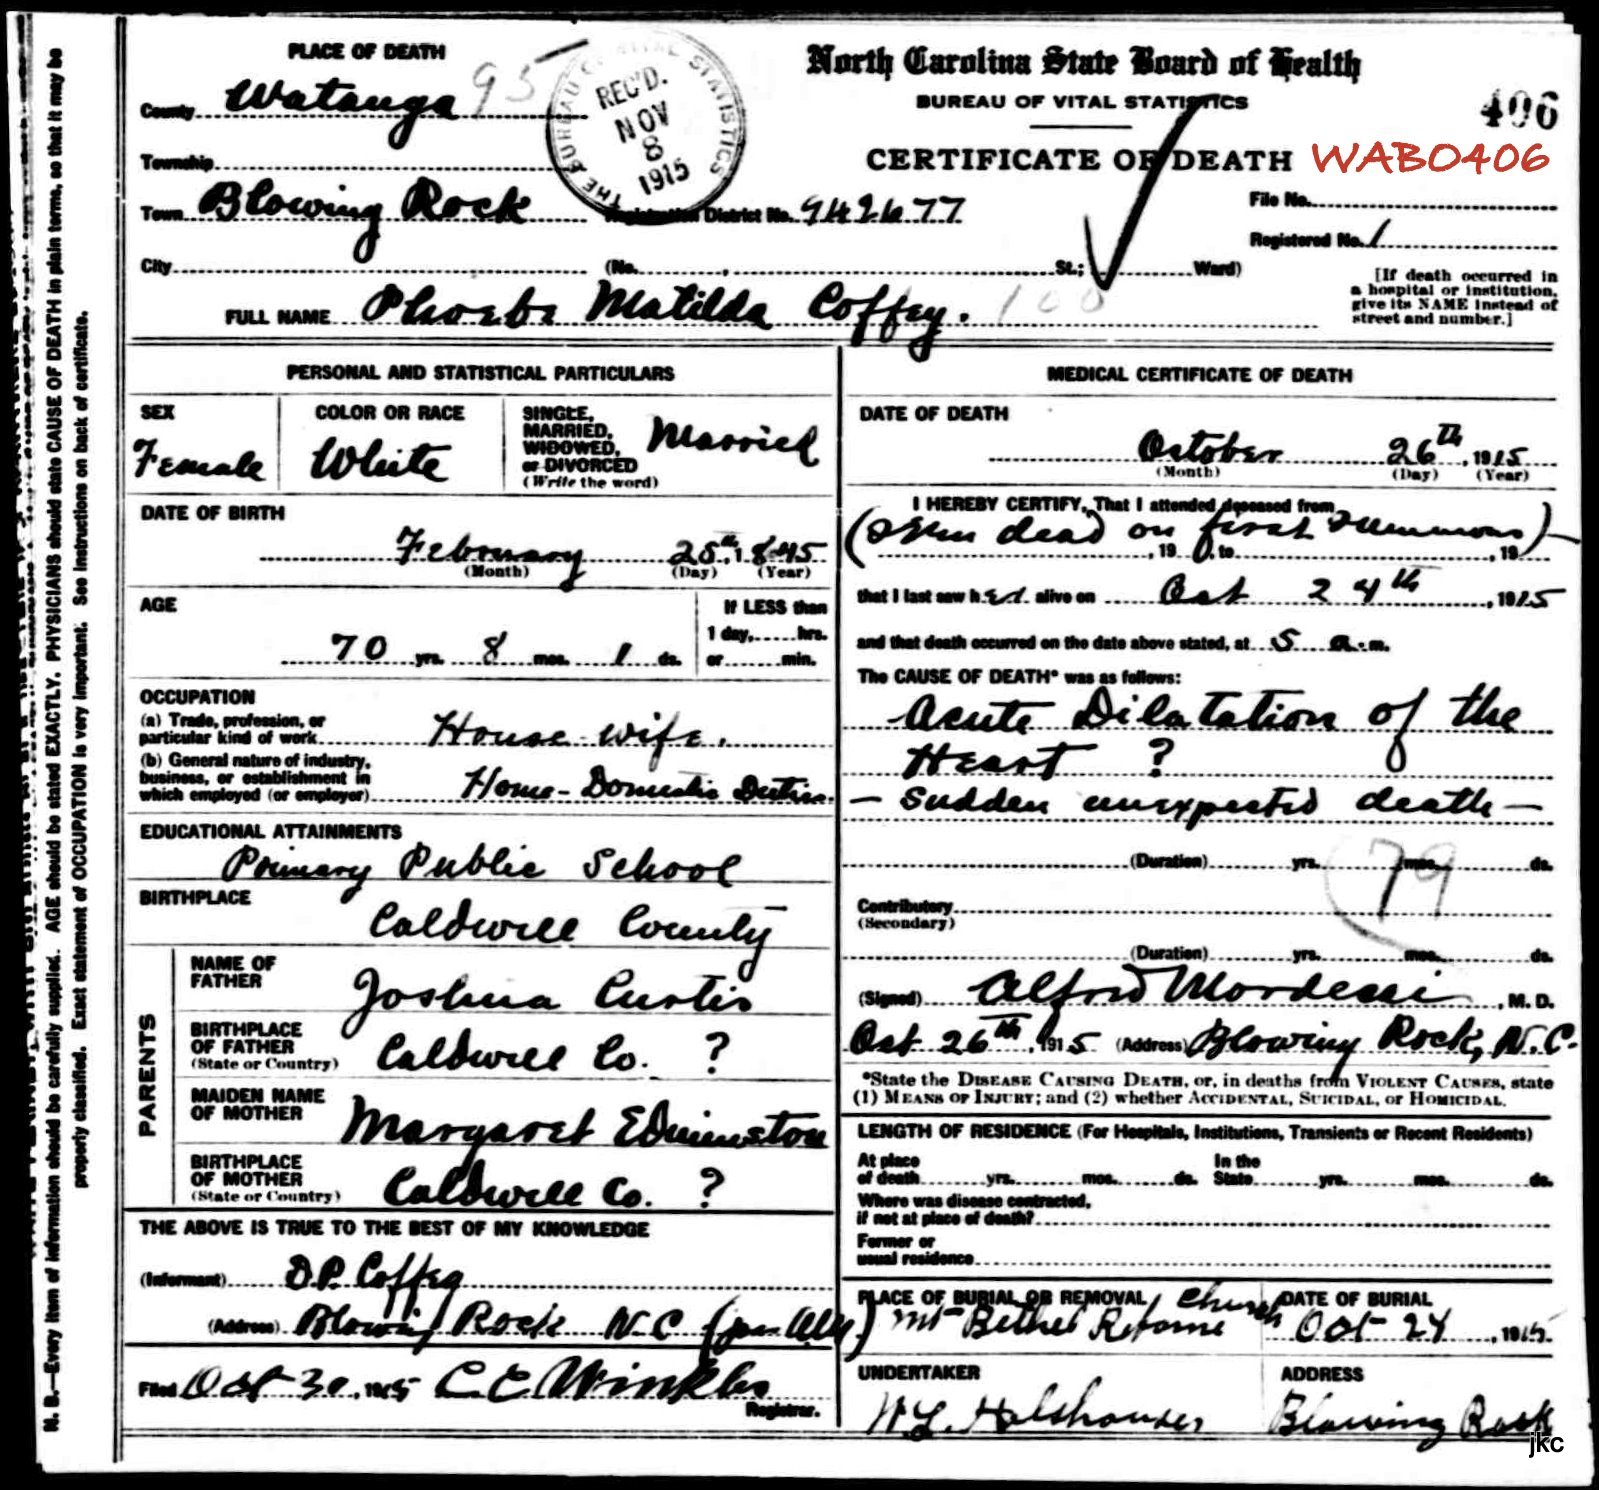 PLACE OF DEATH
County Watauga 95
Township
Town Blowing Rock
City (No. , St.; Ward)
THE BUREAU OF VITAL STATISTICS
REC'D.
NOV
8
1915
North Carolina State Board of Health
BUREAU OF VITAL STATISTICS
406
CERTIFICATE OF DEATH WAB0406
Registration District No. 942677
File No.
Registered No. 1
[If death occurred in
a hospital or institution,
give its NAME instead of
street and number.]
FULL NAME Phoebe Matilda Coffey. 100
PERSONAL AND STATISTICAL PARTICULARS
SEX
Female
COLOR OR RACE
White
SINGLE,
MARRIED,
WIDOWED,
or DIVORCED
(Write the word)
Married
DATE OF BIRTH
February 25th, 1845
(Month) (Day) (Year)
AGE
70 yrs. 8 mos. 1 ds.
If LESS than
1 day, hrs.
or min.
OCCUPATION
(a) Trade, profession, or
particular kind of work House wife.
(b) General nature of industry,
business, or establishment in
which employed (or employer) Home - Domestic Duties
EDUCATIONAL ATTAINMENTS
Primary Public School
BIRTHPLACE
Caldwell County
PARENTS
NAME OF
FATHER
Joshua Curtis
BIRTHPLACE
OF FATHER
(State or Country)
Caldwell Co. ?
MAIDEN NAME
OF MOTHER
Margaret Edminston
BIRTHPLACE
OF MOTHER
(State or Country)
Caldwell Co. ?
THE ABOVE IS TRUE TO THE BEST OF MY KNOWLEDGE
(Informant) D.P. Coffey
(Address) Blowing Rock N.C
Filed Oct 30, 1915 C E Winkler
Registrar.
MEDICAL CERTIFICATE OF DEATH
DATE OF DEATH
October 26th, 1915
(Month) (Day) (Year)
I HEREBY CERTIFY, That I attended deceased from
(Seen dead on first summons)
, 19 , to , 19
that I last saw her alive on Oct 24th, 1915
and that death occurred on the date above stated, at 5 a.m.
The CAUSE OF DEATH* was as follows:
Acute Dilatation of the
Heart ?
- Sudden unexpected death -
(Duration) yrs. mos. ds.
79
Contributory
(Secondary)
(Duration) yrs. mos. ds.
(Signed) Alfred Mordecai, M. D.
Oct 26th, 1915 (Address) Blowing Rock, N.C.
*State the DISEASE CAUSING DEATH, or, in deaths from VIOLENT CAUSES, state
(1) MEANS OF INJURY; and (2) whether ACCIDENTAL, SUICIDAL, or HOMICIDAL.
LENGTH OF RESIDENCE (For Hospitals, Institutions, Transients or Recent Residents)
At place
of death yrs. mos. ds.
In the
State yrs. mos. ds.
Where was disease contracted,
if not at place of death?
Former or
usual residence
PLACE OF BURIAL OR REMOVAL
Mt Bethel Reforme Church
DATE OF BURIAL
Oct 27, 1915
UNDERTAKER
W.L. Holshouser
ADDRESS
Blowing Rock
jkc
N. B.—Every item of information should be carefully supplied. AGE should be stated EXACTLY. PHYSICIANS should state CAUSE OF DEATH in plain terms, so that it may be
properly classified. Exact statement of OCCUPATION is very important. See instructions on back of certificate.